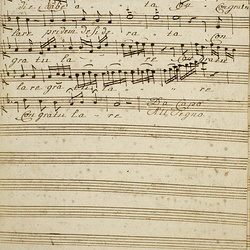 die Saba - - ta Con Congratu
lare pridem deside - ra - ta. Con
gra tu la - - re Congratu
lare gra tu la - - re
Congratu la - re Da Capo
al Segno